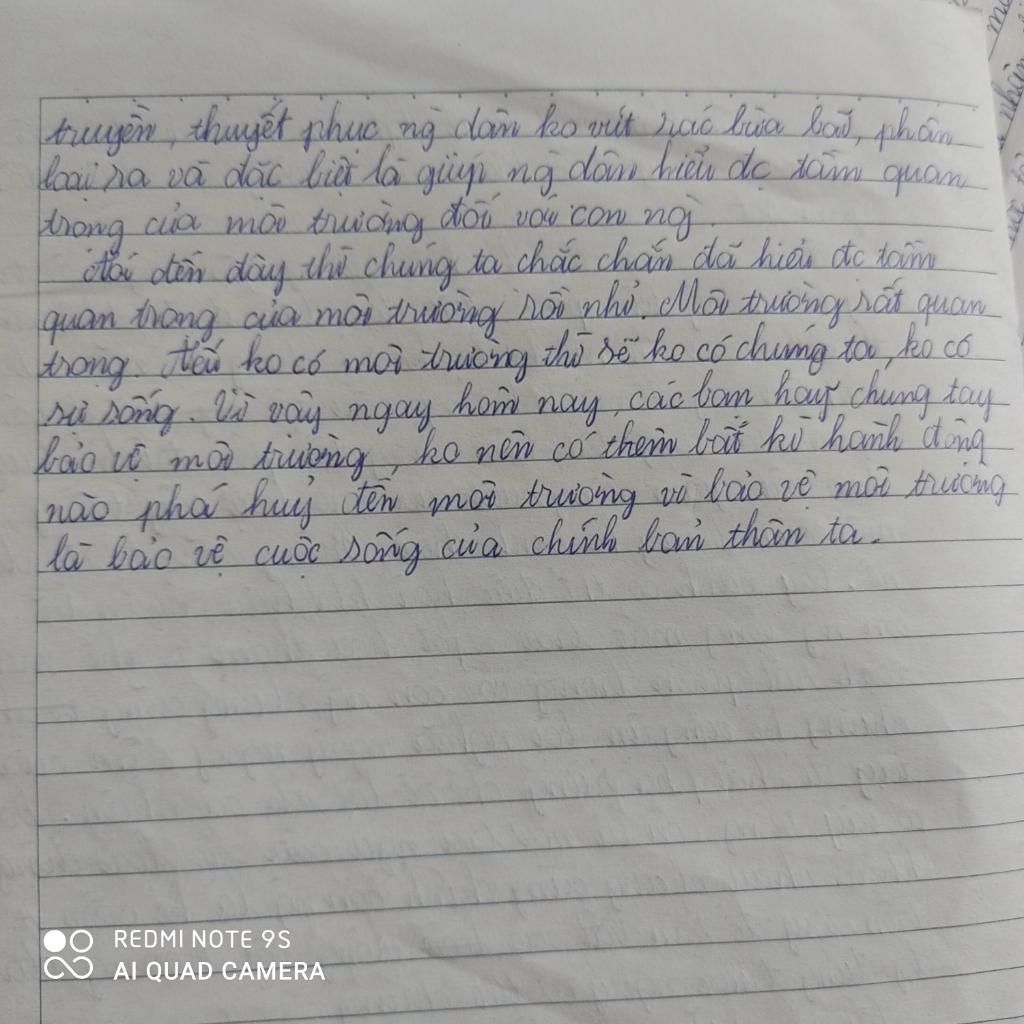 truyền, thuyết phục ng dân ko vứt rác bừa bãi, phân
loại ra và đặc biệt là giúp ng dân hiểu đc tầm quan
trọng của môi trường đối với con ng.
đến đây thì chúng ta chắc chắn đã hiểu đc tầm
quan trọng của môi trường rồi nhỉ. Môi trường rất quan
trọng. Nếu ko có môi trường thì sẽ ko có chúng ta, ko có
sự sống. Vì vậy ngay hôm nay, các bạn hãy chung tay
bảo vệ môi trường, ko nên có thêm bất kì hành động
nào phá huỷ đến môi trường vì bảo vệ môi trường
là bảo vệ cuộc sống của chính bản thân ta.
REDMI NOTE 9S
AI QUAD CAMERA